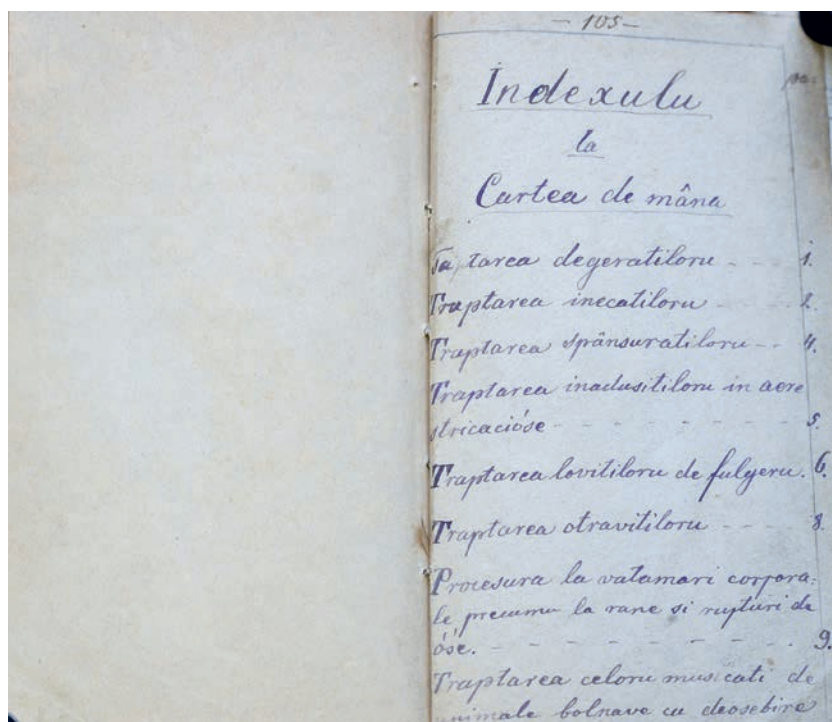 - 105 -
Indexulu
la
Cartea de mâna
Traptarea degeratiloru - - 1.
Traptarea inecatiloru - - - 2.
Traptarea spânsuratiloru - - 4.
Traptarea inadusitiloru in aere
stricacióse - - - - - - - 5.
Traptarea lovitiloru de fulgeru. 6.
Traptarea otravitiloru - - - 8.
Procesura la vatamari corpora=
le precumu la rane si rupturi de
óse. - - - - - - - - 9.
Traptarea celoru muscati de
animale bolnave cu deosebire